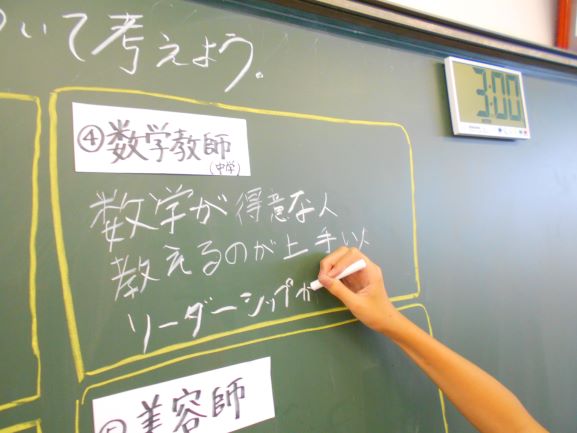 ついて考えよう。
3:00
④数学教師
(中学)
数学が得意な人
教えるのが上手い人
リーダーシップが
⑤美容師